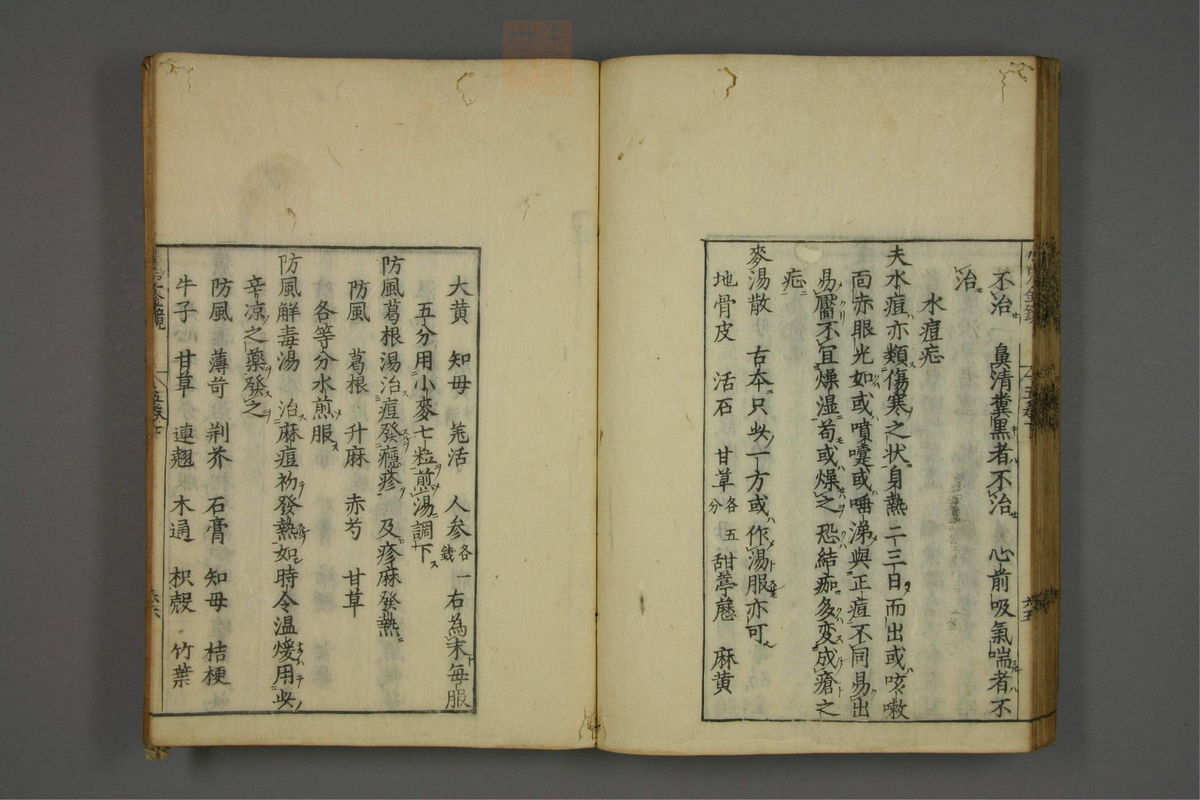 不治　鼻清糞黒者不治　心前吸氣喘者不
治
水痘疮
夫水痘亦類傷寒之状身熱二三日而出或咳嗽
面赤眼光如或噴嚏或唾涕與正痘不同易出
易靨不宜燥湿苟或燥之恐結痂多変成瘡之
疤
麥湯散　古本只此一方或作湯服亦可
地骨皮　活石　甘草各五分　甜葶藶　麻黄
大黄　知母　羌活　人参各一錢　右為末毎服
五分用小麥七粒煎湯調下
防風葛根湯治痘發癮疹　及疹麻發熱
防風　葛根　升麻　赤芍　甘草
各等分水煎服
防風解毒湯　治麻痘初發熱如時令温煖用此
辛凉之藥發之
防風　薄苛　荆芥　石膏　知母　桔梗
牛子　甘草　連翹　木通　枳殻　竹葉